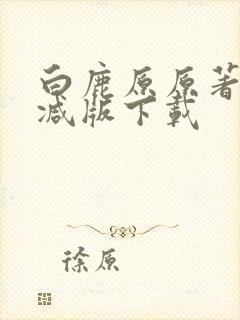 白鹿原原著
减版下载
徐原